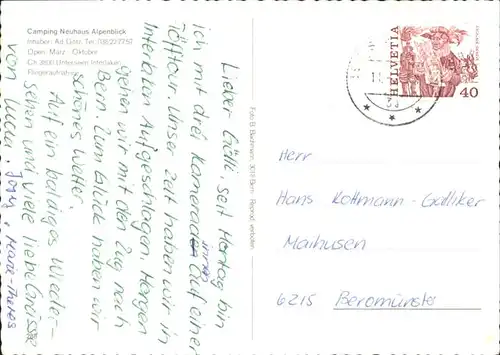 Camping Neuhaus Alpenblick
Inhaber: Ad. Götz Tel.
Open: März - Oktober
CH 3800 Unterseen Interlaken
Fliegeraufnahme
Lieber Götti, seit Montag bin
ich mit drei Kameradinnen auf einer
Töfftour. Unser Zelt haben wir in
Interlaken Aufgeschlagen. Morgen
gehen wir mit dem Zug nach
Bern. Zum Glück haben wir
schönes Wetter.
Auf ein baldiges Wieder-
sehen und viele liebe Grüsse
von
Marie-Theres
Foto B. Bachmann, 3018 Bern
HELVETIA
40
Herr
Hans Kottmann-Galliker
Maihusen
6215 Beromünster